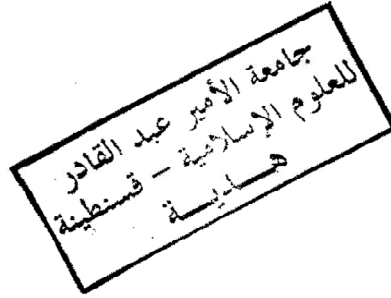 جامعة الأمير عبد القادر
للعلوم الإسلامية – قسنطينة
هـديـة